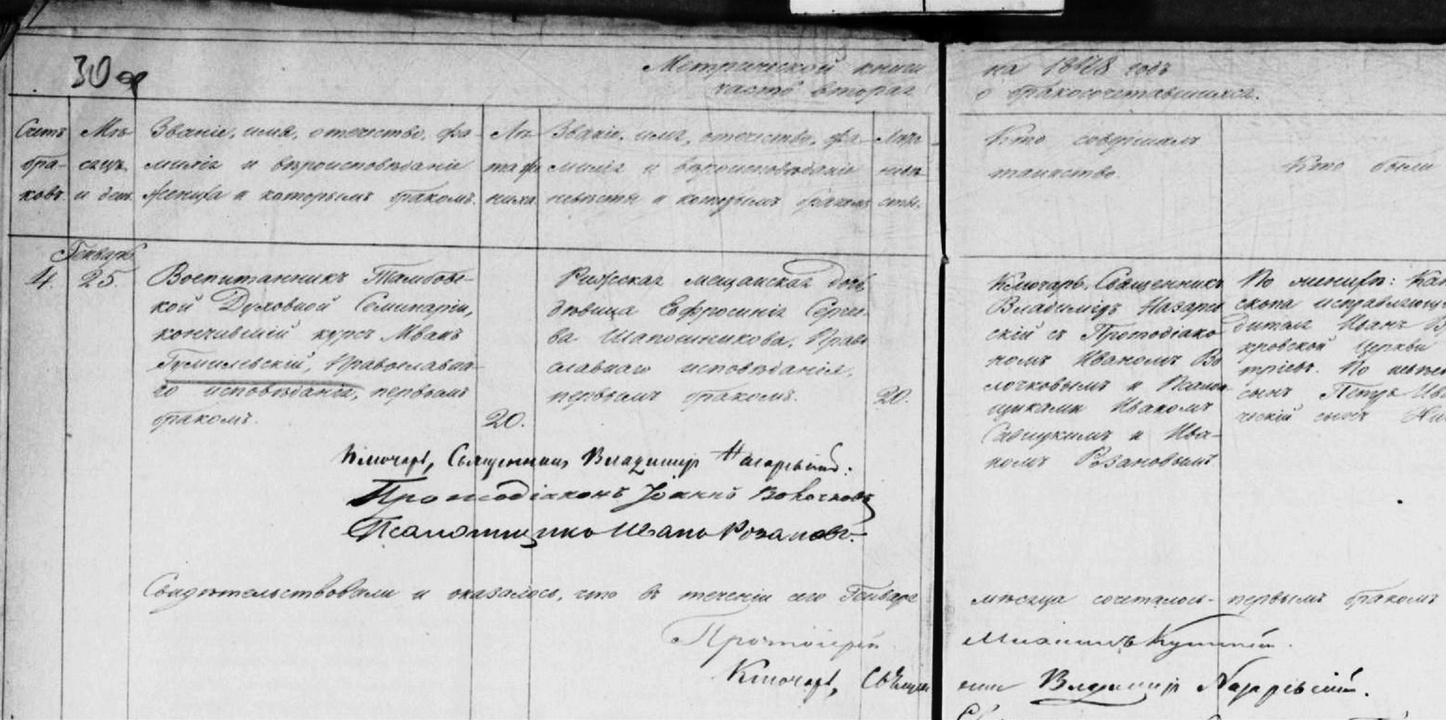 30 об
Метрической книги
часть вторая
на 1848 годъ
о бракосочетавшихся.
Счетъ браковъ
Мѣсяцъ и день
Званіе, имя, отечество, фа-
милія и вѣроисповѣданіе
жениха и которымъ бракомъ.
Лѣта жениха
Званіе, имя, отечество, фа-
милія и вѣроисповѣданіе
невѣсты и которымъ бракомъ
Лѣта невѣсты.
Кто совершалъ
таинство.
Кто были
Генварь
4.
25.
Воспитанникъ Тамбовс-
кой Духовной Семинаріи,
кончившій курсъ Иванъ
Гумилевскій, Православна-
го исповѣданія, первымъ
бракомъ.
20.
Рижская мещанская дочь
дѣвица Ефросинія Сергие-
ва Шапошникова, Право-
славнаго исповѣданія,
первымъ бракомъ.
20.
Ключарь, Священникъ
Владиміръ Назарев-
скій съ Протодіако-
номъ Иваномъ Во-
лочковымъ и Псалом-
щиками Иваномъ
Савицкимъ и Ива-
номъ Розановымъ.
По женихѣ:
исправляющ
Иванъ
Церкви
По невѣ
сынъ Петръ Ива
сынъ
Ключарь, Священникъ Владимір Назаревскій.
Протодіаконъ Іоаннъ Волочковъ
Псаломщикъ Иванъ Розановъ.
Свидѣтельствовали и оказалось, что въ теченіи сего Генваря
мѣсяца сочеталось первымъ бракомъ
Протоіерей
Ключарь, Священ
ник Владимір Назаревскій.